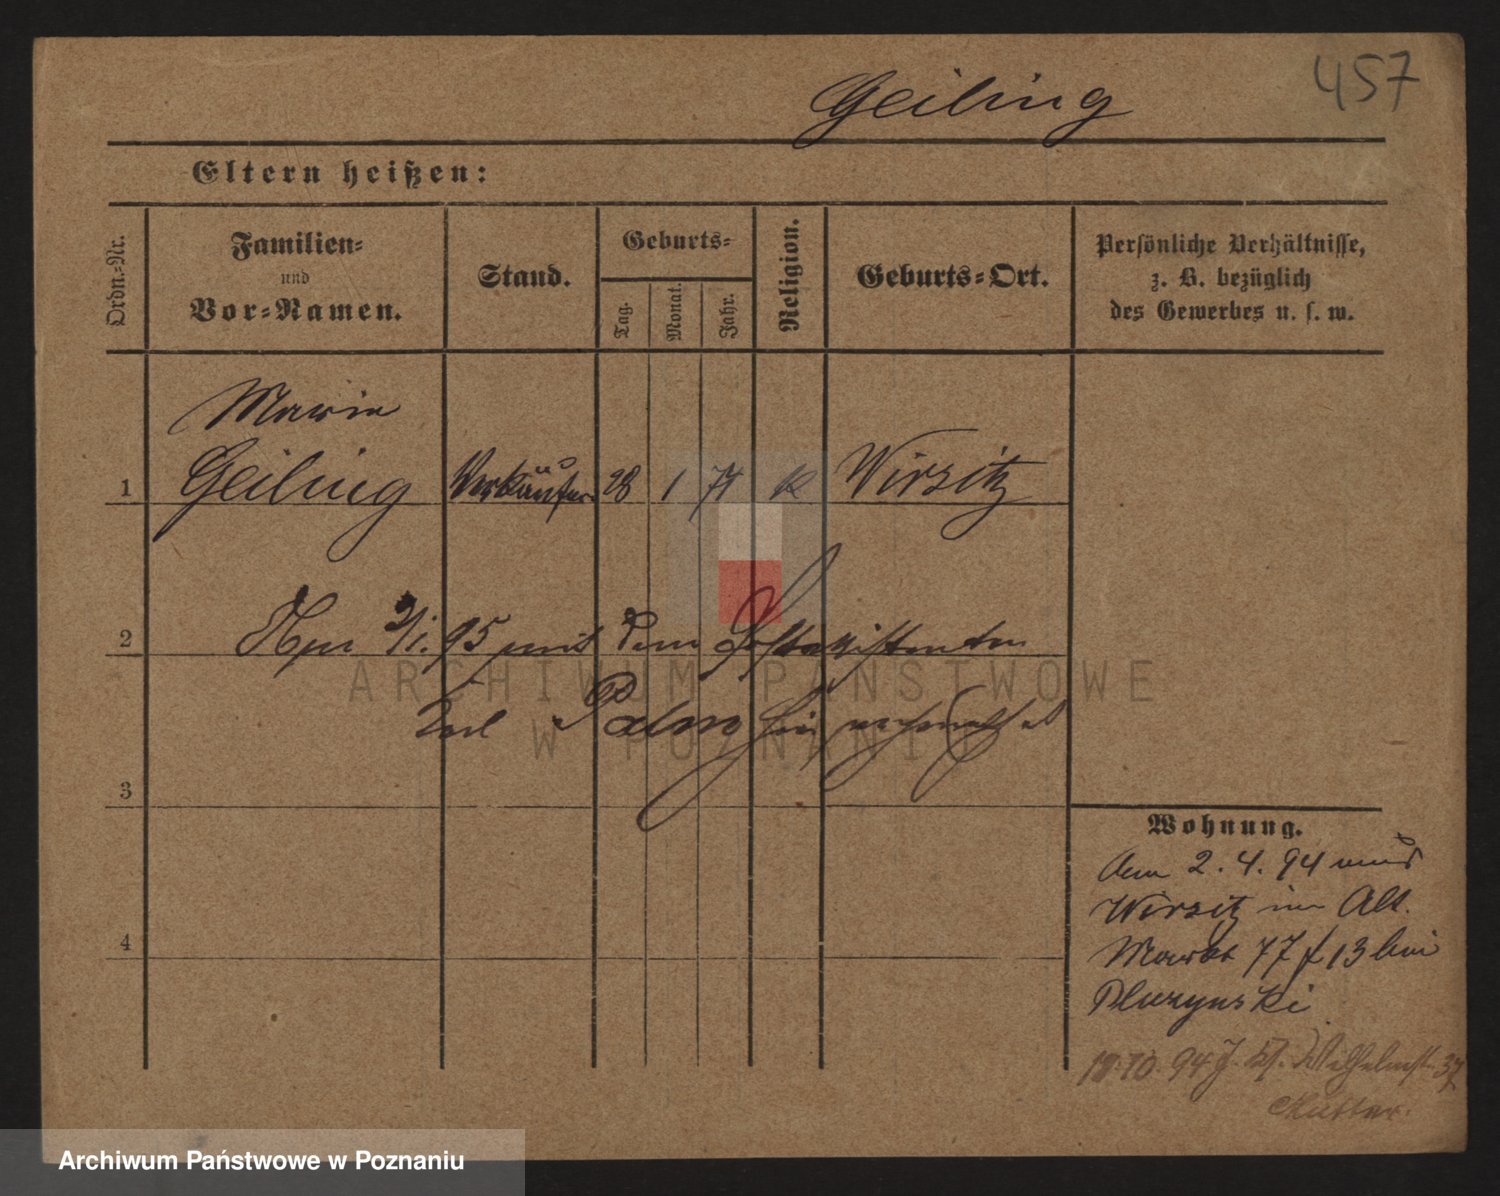 457
Geiling
Eltern heißen:
Ordn.-Nr.
Familien-
und
Vor-Namen.
Stand.
Geburts-
Tag.
Monat.
Jahr.
Religion.
Geburts-Ort.
Persönliche Verhältnisse,
z. B. bezüglich
des Gewerbes u. s. w.
Marie
1 Geiling Verkäufer. 28 1 74 k Wirsitz
2 2/1. 95 mit dem Postassistenten
Carl Palm hier
3
Wohnung.
Am 2. 4. 94 aus
Wirsitz im Alt.
Markt 77 f 13 bei
Pluzynski
4
10. 94 Wilhelmstr. 37
Mutter.
ARCHIWUM PAŃSTWOWE
W POZNANIU
Archiwum Państwowe w Poznaniu